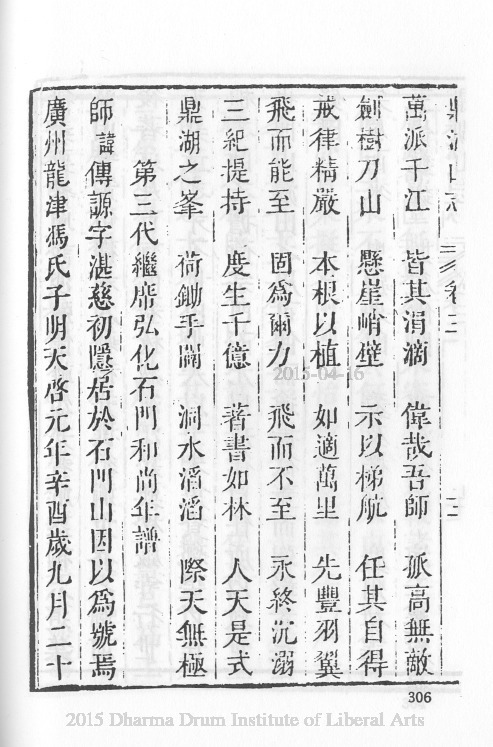 鼎湖山志 卷三
萬派千江 皆其涓滴 偉哉吾師 孤高無敵
劍樹刀山 懸崖峭壁 示以梯航 任其自得
戒律精嚴 本根以植 如適萬里 先豐羽翼
飛而能至 固為爾力 飛而不至 永終沉溺
三紀提持 度生千億 著書如林 人天是式
鼎湖之峯 荷鋤手闢 洞水滔滔 際天無極
第三代繼席弘化石門和尚年譜
師諱傳源字湛慈初隱居於石門山因以為號焉
廣州龍津馮氏子明天啓元年辛酉歲九月二十
306
2015-04-16
2015 Dharma Drum Institute of Liberal Arts